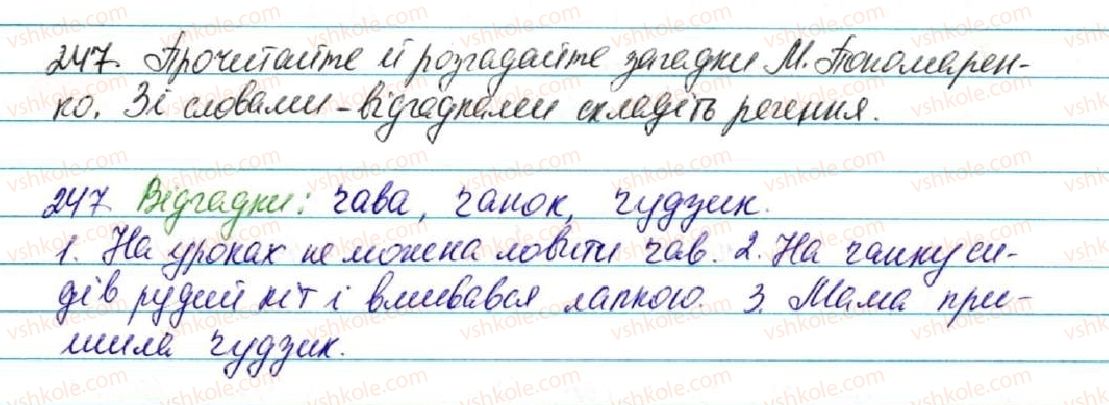 247. Прочитайте й розгадайте загадки М. Пономарен-
ко. Зі словами-відгадками складіть речення.
247 Відгадки: ґава, ґанок, ґудзик.
1. На уроках не можна ловити ґав. 2. На ґанку си-
дів рудий кіт і вмивався лапкою. 3. Мама при-
шила ґудзик.